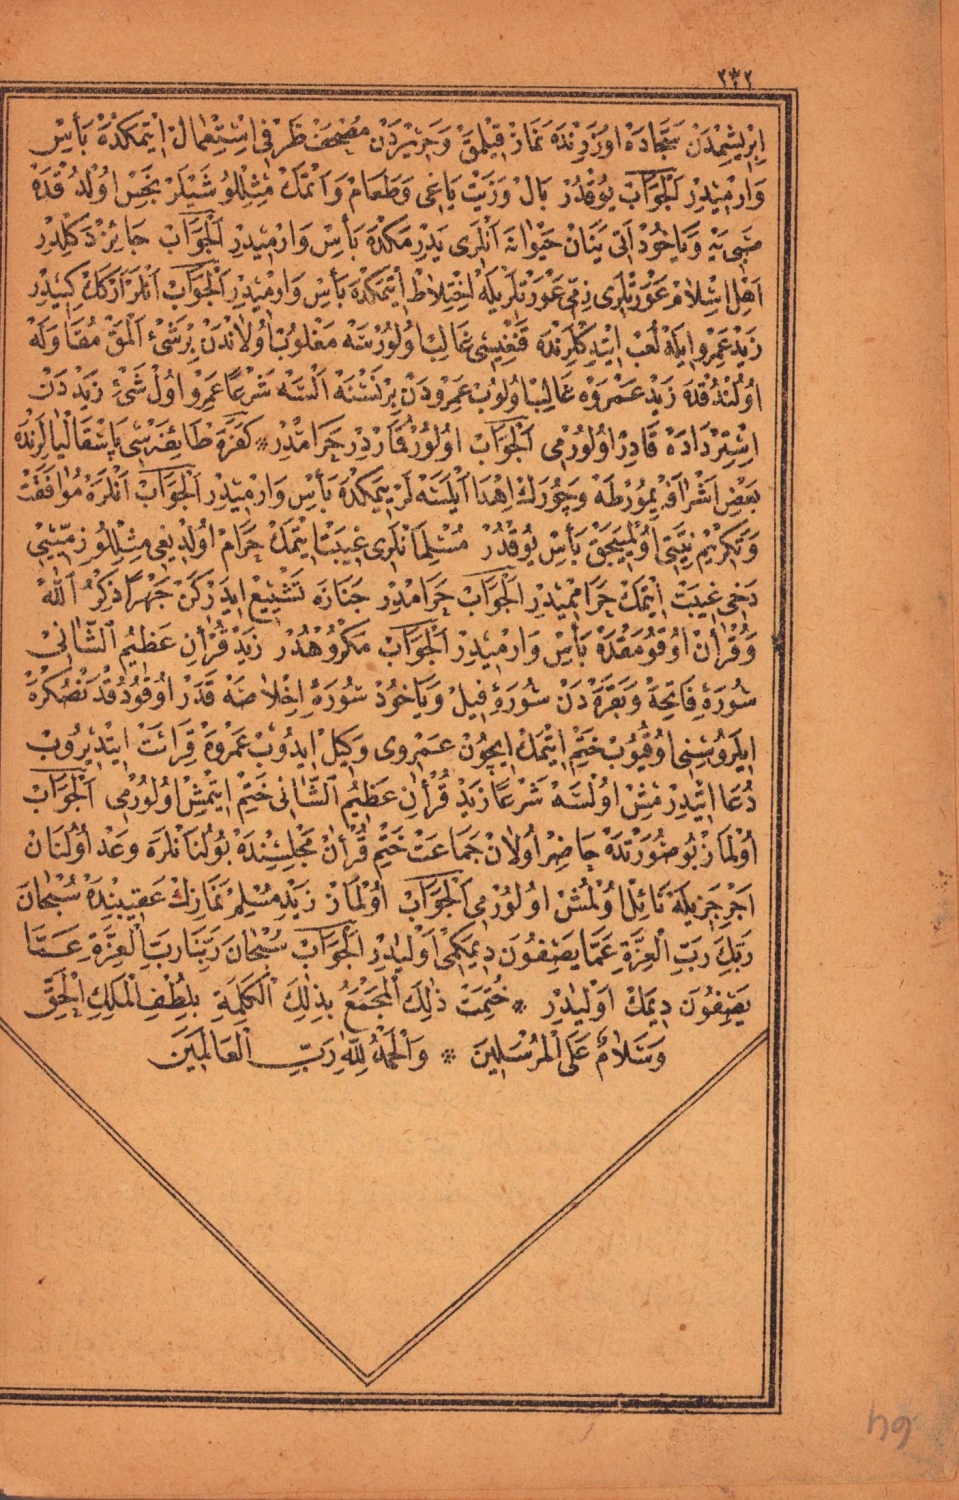 ٢٣٢
اِبْرِيشِمْدَنْ سَجَّادَهْ اوُزَرِنْدَهْ نَمَازْ قِيلْمَقْ وَحَرِيرْدَنْ مُصْحَفْ ظَرْفِى اِسْتِعْمَالْ اِيتْمَكْدَهْ بَأْسْ
وَارْمِيدِرْ اَلْجَوَابْ يُوقْدُرْ بَالْ وَزَيْتْ يَاغِى وَطَعَامْ وَاَتْمَكْ مِثِللُو شَيْلَرْ نَجِسْ اوُلْدُقْدَهْ
صَبِى يَهْ وَيَاخُودْ اَتِى يَنَانْ حَيْوَانَهْ اَنْلَرِى يَدِرْمَكْدَهْ بَأْسْ وَارْمِيدِرْ اَلْجَوَابْ جَائِزْ دَكِلْدِرْ
اَهْلِ اِسْلَامْ عَوْرَتْلَرِى ذِمِّى عَوْرَتْلَرِيلَهْ اِخْتِلَاطْ اِيتْمَكْدَهْ بَأْسْ وَارْمِيدِرْ اَلْجَوَابْ اَنْلَرْ اَرْكَكْ كِبِيدِرْ
زَيْدْ عَمْرِو اِيلَهْ لَعْبْ اِيتْدِكْلَرِنْدَهْ قَنْغِيسِى غَالِبْ اوُلُورْسَهْ مَغْلُوبْ اوُلَانْدَنْ بِرْ شَىْءْ اَلْمَقْ مُقَاوَلَهْ
اوُلُنْدُقْدَهْ زَيْدْ عَمْرَوهْ غَالِبْ اوُلُوبْ عَمْرِودَنْ بِرْ نَسْنَهْ اَلْسَهْ شَرْعًا عَمْرِو اوُلْ شَىْءِ زَيْدْ دَنْ
اِسْتِرْدَادَهْ قَادِرْ اوُلُورْمِى اَلْجَوَابْ اوُلُورْ قُمَارْدِرْ حَرَامْدِرْ * كَفَرَهْ طَائِفَهْ سِى پَاسْقَالْيَا لَرِنْدَهْ
بَعْضِ اَشْرَافَهْ يُمُورْطَهْ وَچُورَكْ اِهْدَا اَيْلَسَهْ لَرْ يِيمَكْدَهْ بَأْسْ وَارْمِيدِرْ اَلْجَوَابْ اَنْلَرَهْ مُوَافَقَتْ
وَتَكْرِيمْ نِيَّتِى اوُلْمِيَجَقْ بَأْسْ يُوقْدُرْ مُسْلِمَانْلَرِى غِيبَتْ اِيتْمَكْ حَرَامْ اوُلْدِيغِى مِثِللُو ذِمِّييِى
دَخِى غِيبَتْ اِيتْمَكْ حَرَامْمِيدِرْ اَلْجَوَابْ حَرَامْدِرْ جَنَازَهْ تَشْيِيعْ ايدَرْكَنْ جَهْرًا ذِكْرُ اللّٰهْ
وَقُرْاٰنْ اوُقُومَقْدَهْ بَأْسْ وَارْمِيدِرْ اَلْجَوَابْ مَكْرُوهْدُرْ زَيْدْ قُرْاٰنِ عَظِيمُ الشَّانِىْ
سُورَهٔ فَاتِحَهْ وَبَقَرَهْ دَنْ سُورَهٔ فِيلْ وَيَاخُودْ سُورَهٔ اِخْلَاصَهْ قَدَرْ اوُقُودُقْدَنْصُكْرَهْ
اِيلَرُوسِنِى اوُقُيُوبْ خَتْمِ اِيتْمَكْ اِيچُونْ عَمْرِوى وَكِيلْ اِيدُوبْ عَمْرِوَهْ قِرَائَتْ اِيتْدِيرُوبْ
دُعَا اِيتْدِرْمِشْ اوُلْسَهْ شَرْعًا زَيْدْ قُرْاٰنِ عَظِيمُ الشَّانِى خَتْمِ اِيتْمِشْ اوُلُورْمِى اَلْجَوَابْ
اوُلْمَازْ بُو صُورَتْدَهْ حَاضِرْ اوُلَانْ جَمَاعَتْ خَتْمِ قُرْاٰنْ مَجْلِسِنْدَهْ بُولُنَانْلَرَهْ وَعْدْ اوُلُنَانْ
اَجْرِ جَزِيلَهْ نَائِلْ اوُلْمُشْ اوُلُورْمِى اَلْجَوَابْ اوُلْمَازْ زَيْدِ مُسْلِمْ نَمَازِنْكْ عَقِيبِنْدَهْ سُبْحَانَ
رَبِّكَ رَبِّ الْعِزَّةِ عَمَّا يَصِفُونَ دِيمَكْمِى اَوْلَيدِرْ اَلْجَوَابْ سُبْحَانَ رَبِّنَا رَبِّ الْعِزَّةِ عَمَّا
يَصِفُونَ دِيمَكْ اَوْلَيدِرْ * خُتِمَتْ ذٰلِكَ الْمَجْمَعُ بِذٰلِكَ الْكَلِمَةِ بِلُطْفِ الْمَلِكِ الْحَقِّ
وَسَلَامٌ عَلَى الْمُرْسَلِينَ * وَالْحَمْدُ لِلّٰهِ رَبِّ الْعَالَمِينَ